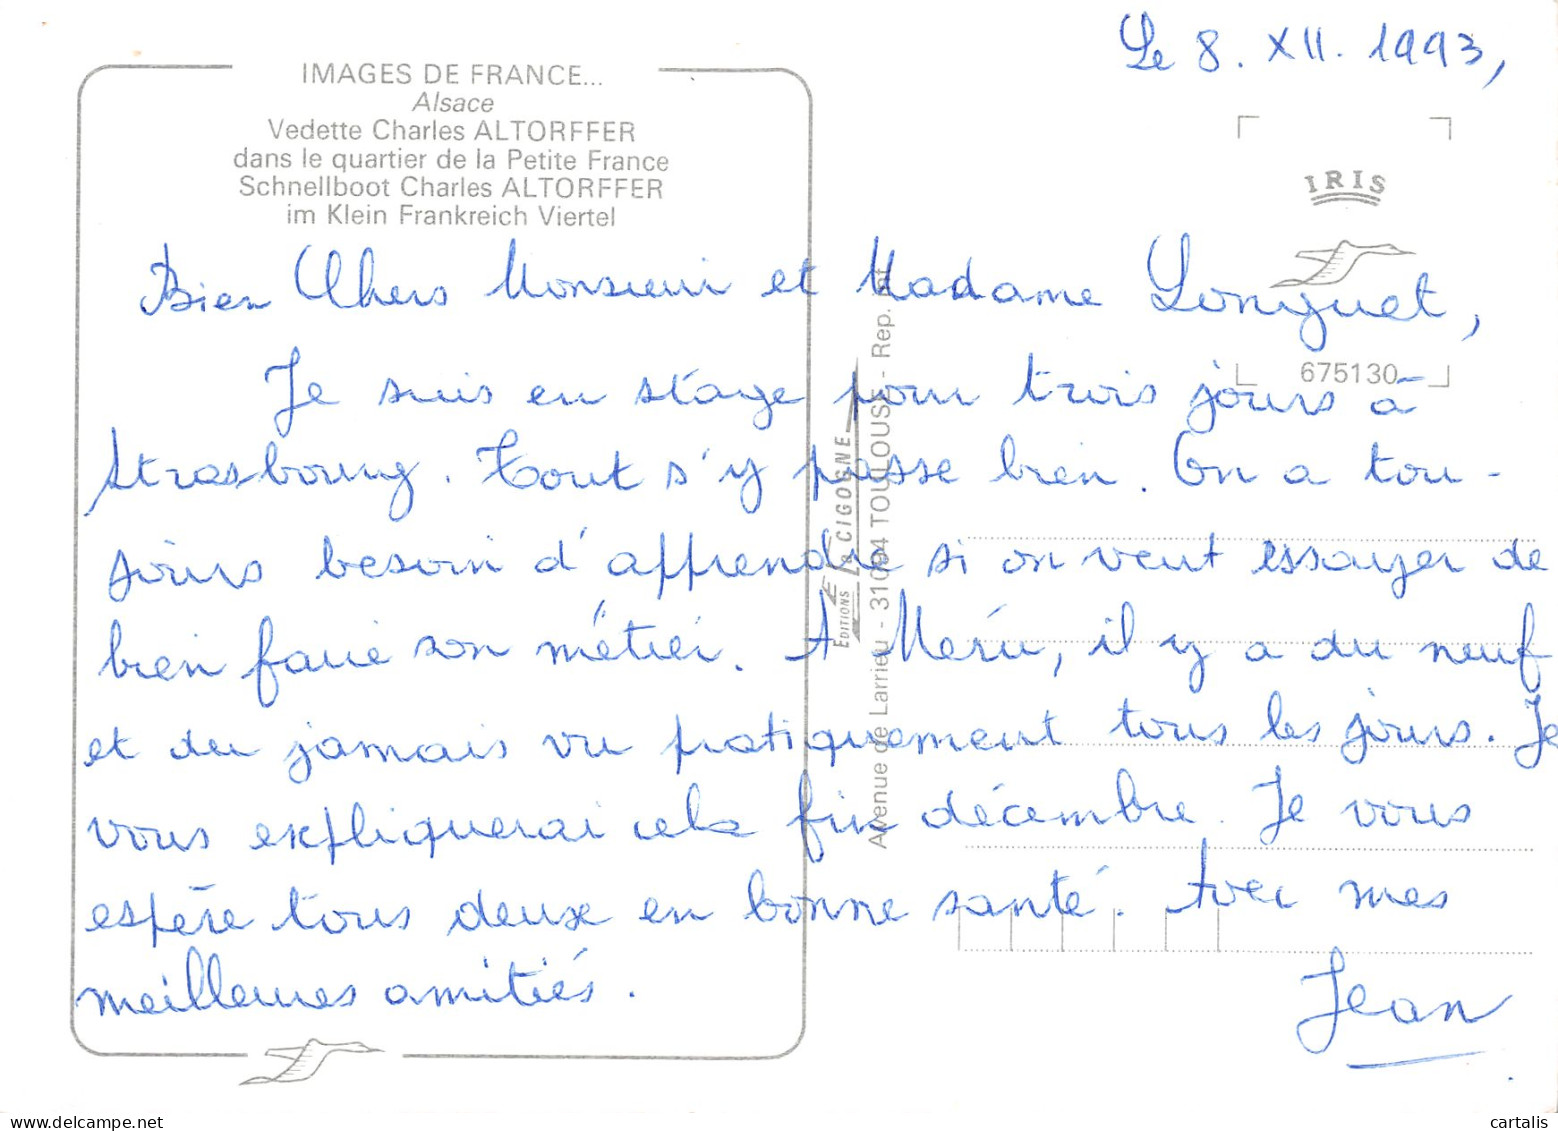 Le 8. XII. 1993,
IMAGES DE FRANCE...
Alsace
Vedette Charles ALTORFFER
dans le quartier de la Petite France
Schnellboot Charles ALTORFFER
im Klein Frankreich Viertel
IRIS
675130
Bien Chers Monsieur et Madame Longuet,
Je suis en stage pour trois jours à
Strasbourg. Tout s'y passe bien. On a tou-
jours besoin d'apprendre si on veut essayer de
bien faire son métier. A Méru, il y a du neuf
et du jamais vu pratiquement tous les jours. Je
vous expliquerai cela fin décembre. Je vous
espère tous deux en bonne santé. Avec mes
meilleures amitiés.
Jean
EDITIONS La CIGOGNE
Avenue de Larrieu - 31094 TOULOUSE - Rep. Int
www.delcampe.net
cartalis